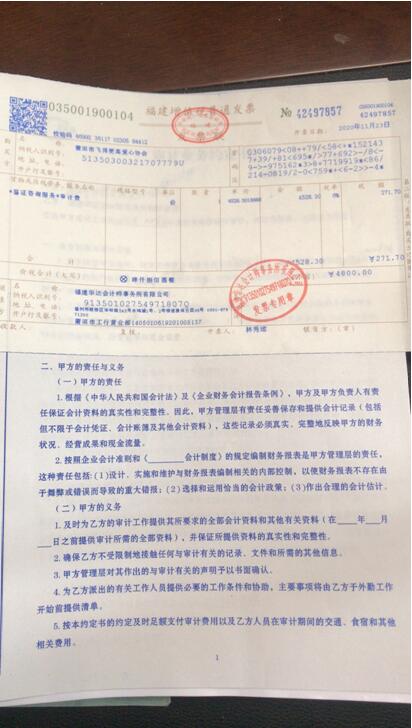 035001900104
福建增值税普通发票
No 42497857
035001900104
42497857
校验码
开票日期: 2020年11月23日
纳税人识别号:
51350300321707779U
地址、电话:
开户行及账号:
规格型号 单位 数量 单价 金额 税率 税额
*鉴证咨询服务*审计费
4528.30
271.70
¥271.70
价税合计(大写)
肆仟捌佰圆整
¥4800.00
福建华达会计师事务所有限公司
纳税人识别号:
913501027549718070
地址、电话:
开户行及账号:
收款人:
复核:
开票人:
林秀璇
销售方:(章)
发票专用章
二、甲方的责任与义务
(一)甲方的责任
1.根据《中华人民共和国会计法》及《企业财务会计报告条例》,甲方及甲方负责人有责
任保证会计资料的真实性和完整性。因此,甲方管理层有责任妥善保存和提供会计记录(包括
但不限于会计凭证、会计账簿及其他会计资料),这些记录必须真实、完整地反映甲方的财务
状况、经营成果和现金流量。
2.按照企业会计准则和《________会计制度》的规定编制财务报表是甲方管理层的责任,
这种责任包括:(1)设计、实施和维护与财务报表编制相关的内部控制,以使财务报表不存在由
于舞弊或错误而导致的重大错报;(2)选择和运用恰当的会计政策;(3)作出合理的会计估计。
(二)甲方的义务
1.及时为乙方的审计工作提供其所要求的全部会计资料和其他有关资料(在____年___月
___日之前提供审计所需的全部资料),并保证所提供资料的真实性和完整性。
2.确保乙方不受限制地接触任何与审计有关的记录、文件和所需的其他信息。
3.甲方管理层对其作出的与审计有关的声明予以书面确认。
4.为乙方派出的有关工作人员提供必要的工作条件和协助,主要事项将由乙方于外勤工作
开始前提供清单。
5.按本约定书的约定及时足额支付审计费用以及乙方人员在审计期间的交通、食宿和其他
相关费用。
1